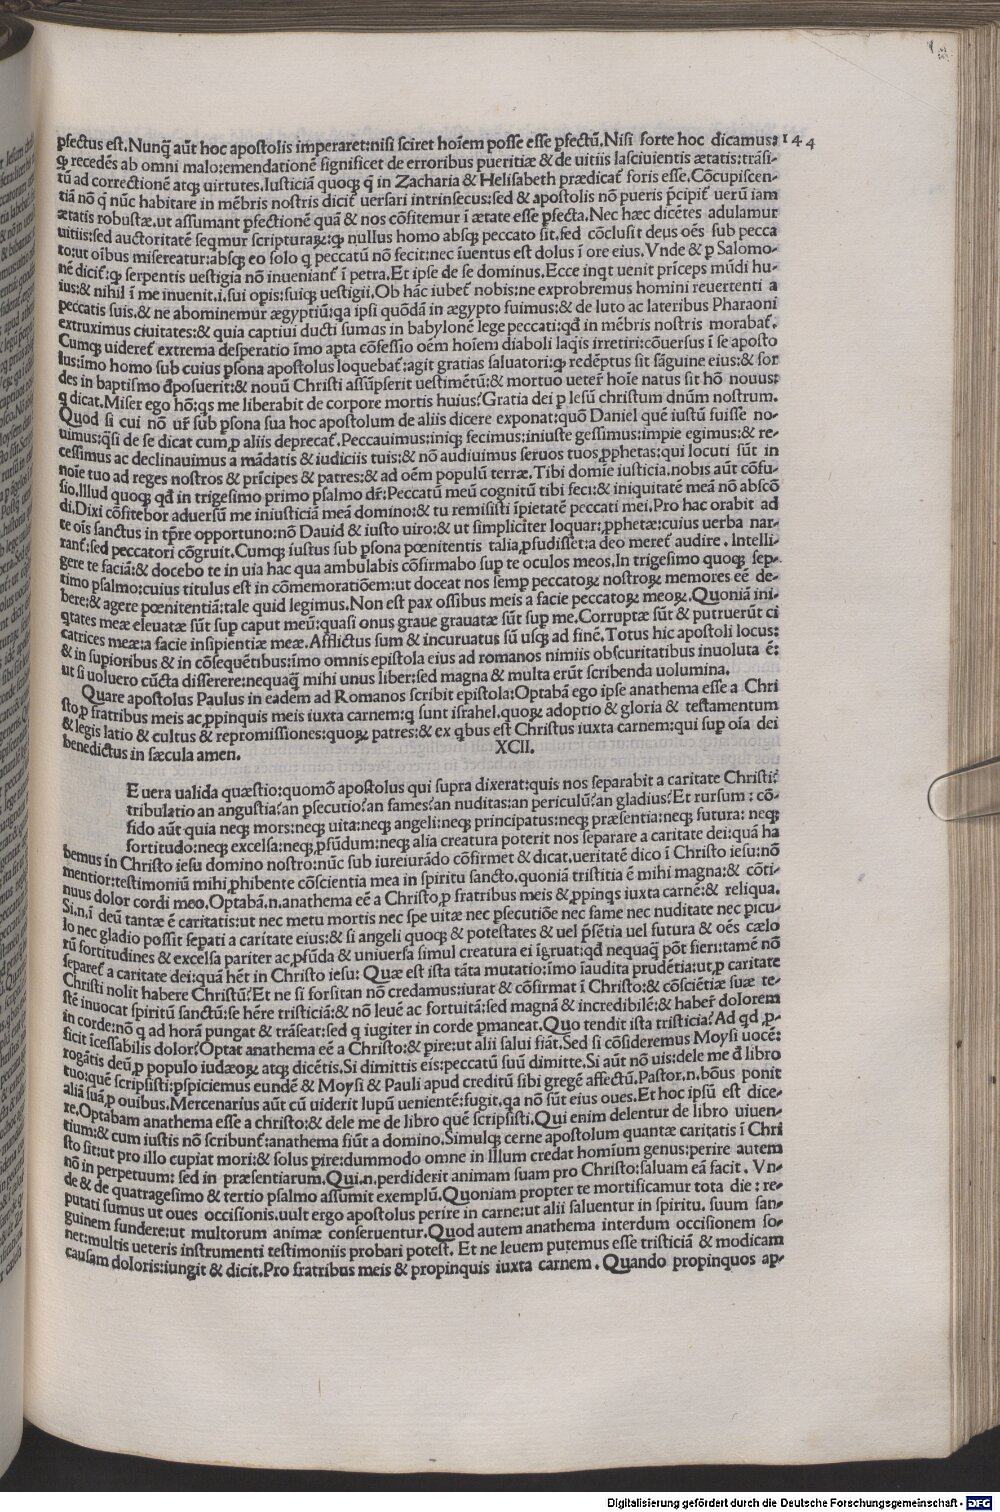 ꝑfectus est.Nunq̃ aūt hoc apostolis imperaret:nisi sciret hoīem posse esse ꝑfectū.Nisi forte hoc dicamus: 144
ꝙ recedēs ab omni malo:emendationē significet de erroribus pueritiæ & de uitiis lasciuientis ætatis:trāsi-
tū ad correctionē atq; uirtutes.Iusticiā quoq; q̄ in Zacharia & Helisabeth prædicat̃ foris esse.Cōcupiscen-
tiā nō q̄ nūc habitare in mēbris nostris dicit̃ uersari intrinsecus:sed & apostolis nō pueris p̃cipit̃ uerū iam
ætatis robustæ.ut assumant ꝑfectionē quā & nos cōfitemur ī ætate esse ꝑfecta.Nec hæc dicētes adulamur
uitiis:sed auctoritatē seqmur scripturaꝝ:ꝙ nullus homo absq; peccato sit.sed cōclusit deus oēs sub pecca
to:ut oībus misereatur:absq; eo solo q peccatū nō fecit:nec īuentus est dolus ī ore eius.Vnde & ꝑ Salomo-
nē dicit̃:ꝙ serpentis uestigia nō inueniant̃ ī petra.Et ipse de se dominus.Ecce inqt uenit prīceps mūdi hu-
ius:& nihil ī me inuenit.i.sui opis:suiq; uestigii.Ob hāc iubet̃ nobis:ne exprobremus homini reuertenti a
peccatis suis.& ne abominemur ægyptiū:qa ipsi quōdā in ægypto fuimus:& de luto ac lateribus Pharaoni
extruximus ciuitates:& quia captiui ducti sumas in babylonē lege peccati:qd̄ in mēbris nostris morabat̃.
Cumq; uideret̃ extrema desperatio īmo apta cōfessio oēm hoiem diaboli laq̄is irretiri:cōuersus ī se aposto
lus:īmo homo sub cuius ꝑsona apostolus loquebat̃:agit gratias saluatori:ꝙ redēptus sit sāguine eius:& sor
des in baptismo dꝑosuerit:& nouū Christi assūpserit uestimētū:& mortuo ueter̃ hoie natus sit hō nouus:
q dicat.Miser ego hō:qs me liberabit de corpore mortis huius?Gratia dei ꝑ Iesū christum dnūm nostrum.
Quod si cui nō ur̃ sub ꝑsona sua hoc apostolum de aliis dicere exponat:quō Daniel quē iustū fuisse no-
uimus:q̄si de se dicat cum ꝓ aliis deprecat̃.Peccauimus:iniq; fecimus:iniuste gessimus:impie egimus:& re-
cessimus ac declinauimus a mādatis & iudiciis tuis:& nō audiuimus seruos tuos ꝓphetas:qui locuti sūt in
noīe tuo ad reges nostros & prīcipes & patres:& ad oēm populū terræ.Tibi domīe iusticia.nobis aūt cōfu-
sio.Illud quoq; qd̄ in trigesimo primo psalmo dr̃:Peccatū meū cognitū tibi feci:& iniquitatē meā nō abscō
di.Dixi cōfitebor aduersū me iniusticiā meā domino:& tu remisisti īpietatē peccati mei.Pro hac orabit ad
te oīs sanctus in tp̃re opportuno:nō Dauid & iusto uiro:& ut simpliciter loquar:ꝓphetæ:cuius uerba nar-
rant̃:sed peccatori cōgruit.Cumq; iustus sub ꝑsona pœnitentis talia ꝓfudisset:a deo meret̃ audire.Intelli-
gere te faciā:& docebo te in uia hac qua ambulabis cōfirmabo suꝑ te oculos meos.In trigesimo quoq; sep-
timo psalmo:cuius titulus est in cōmemoratiōem:ut doceat nos semꝑ peccatoꝝ nostroꝝ memores eē de-
bere:& agere pœnitentiā:tale quid legimus.Non est pax ossibus meis a facie peccatoꝝ meoꝝ.Quoniā ini-
qtates meæ eleuatæ sūt suꝑ caput meū:quasi onus graue grauatæ sūt suꝑ me.Corruptæ sūt & putruerūt ci
catrices meæ:a facie insipientiæ meæ.Afflictus sum & incuruatus sū usq; ad finē.Totus hic apostoli locus:
& in suꝑioribus & in cōsequētibus:īmo omnis epistola eius ad romanos nimiis obscuritatibus inuoluta ē:
ut si uoluero cūcta disserere:nequaq̄ mihi unus liber:sed magna & multa erūt scribenda uolumina.
Quare apostolus Paulus in eadem ad Romanos scribit epistola:Optabā ego ipse anathema esse a Chri
sto ꝓ fratribus meis ac ꝓpinquis meis iuxta carnem:q sunt israhel.quoꝝ adoptio & gloria & testamentum
& legis latio & cultus & repromissiones:quoꝝ patres:& ex qbus est Christus iuxta carnem:qui suꝑ oīa dei
benedictus in sæcula amen. XCII.
E uera ualida quæstio:quomō apostolus qui supra dixerat:quis nos separabit a caritate Christi?
tribulatio an angustia?an ꝑsecutio?an fames?an nuditas:an periculū?an gladius?Et rursum:cō-
fido aūt quia neq; mors:neq; uita:neq; angeli:neq; principatus:neq; præsentia:neq; futura: neq;
fortitudo:neq; excelsa:neq; ꝓfūdum:neq; alia creatura poterit nos separare a caritate dei:quā ha
bemus in Christo iesu domino nostro:nūc sub iureiurādo cōfirmet & dicat.ueritatē dico ī Christo iesu:nō
mentior:testimoniū mihi ꝑhibente cōscientia mea in spiritu sancto.quoniā tristitia ē mihi magna:& cōti-
nuus dolor cordi meo.Optabā.n.anathema eē a Christo ꝓ fratribus meis & ꝓpinqs iuxta carnē:& reliqua.
Si.n.ī deū tantæ ē caritatis:ut nec metu mortis nec spe uitæ nec ꝑsecutiōe nec fame nec nuditate nec picu-
lo nec gladio possit sepati a caritate eius:& si angeli quoq; & potestates & uel p̃sētia uel futura & oēs cælo
rū fortitudines & excelsa pariter ac ꝓfūda & uniuersa simul creatura ei īgruat:qd̄ nequaq̄ pōt fieri:tamē nō
separet̃ a caritate dei:quā hēt in Christo iesu: Quæ est ista tāta mutatio:īmo īaudita prudētia:ut ꝓ caritate
Christi nolit habere Christū?Et ne si forsitan nō credamus:iurat & cōfirmat ī Christo:& cōsciētiæ suæ te-
stē inuocat spiritū sanctū:se hēre tristiciā:& nō leuē ac fortuitā:sed magnā & incredibilē:& haber̃ dolorem
in corde:nō q ad horā pungat & trāseat:sed q iugiter in corde ꝑmaneat.Quo tendit ista tristicia?Ad qd ꝓ-
ficit īcessabilis dolor?Optat anathema eē a Christo:& ꝑire:ut alii salui fiāt.Sed si cōsideremus Moysi uocē:
rogātis deū ꝓ populo iudæoꝝ atq; dicētis.Si dimittis eis:peccatū suū dimitte.Si aūt nō uis:dele me đ libro
tuo:quē scripsisti:ꝑspiciemus eundē & Moysi & Pauli apud creditū sibi gregē affectū.Pastor.n.bōus ponit
aliā suā ꝓ ouibus.Mercenarius aūt cū uiderit lupū uenientē:fugit.qa nō sūt eius oues.Et hoc ipsū est dice-
re.Optabam anathema esse a christo:& dele me de libro quē scripsisti.Qui enim delentur de libro uiuen-
tium:& cum iustis nō scribunt̃:anathema fiūt a domino.Simulq; cerne apostolum quantæ caritatis ī Chri
sto sit:ut pro illo cupiat mori:& solus ꝑire:dummodo omne in Illum credat homīum genus:perire autem
nō in perpetuum: sed in præsentiarum.Qui.n.perdiderit animam suam pro Christo:saluam eā facit. Vn-
de & de quatragesimo & tertio psalmo assumit exemplū.Quoniam propter te mortificamur tota die:re-
putati sumus ut oues occisionis.uult ergo apostolus perire in carne:ut alii saluentur in spiritu. suum san-
guinem fundere:ut multorum animæ conseruentur.Quod autem anathema interdum occisionem so-
net:multis ueteris instrumenti testimoniis probari potest. Et ne leuem putemus esse tristiciā & modicam
causam doloris:iungit & dicit.Pro fratribus meis & propinquis iuxta carnem.Quando propinquos ap-
Digitalisierung gefördert durch die Deutsche Forschungsgemeinschaft - DFG